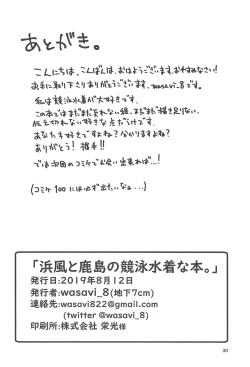 あとがき。
こんにちは、こんばんは、おはようございます、おやすみなさい!
お手に取り下さりありがとうございます、wasavi_8です。
私は競泳水着が大好きです。
この本ではまだまだ至れない銀、まだまだ描き足りない、
伝え切れない好きな点だらけです。
あなたも好きですよね?分かりますよね?
ありがとう!握手!!
では次回のコミケでお会い出来れば…!
(コミケ100には必ず出たいなぁ...)
「浜風と鹿島の競泳水着な本。」
発行日:2019年8月12日
発行者:wasavi_8(地下7cm)
連絡先:wasavi822@gmail.com
(twitter @wasavi_8)
印刷所:株式会社 栄光様